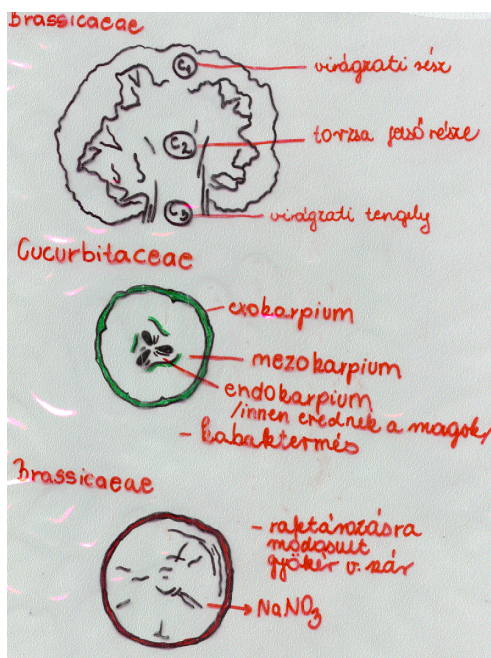 Brassicaceae
C1
virágzati rész
C2
torzsa felső része
C3
virágzati tengely
Cucurbitaceae
exokarpium
mezokarpium
endokarpium
/innen erednek a magok/
- kabaktermés
Brassicaeae
- raktározásra
módosult
gyökér v. szár
NaNO3